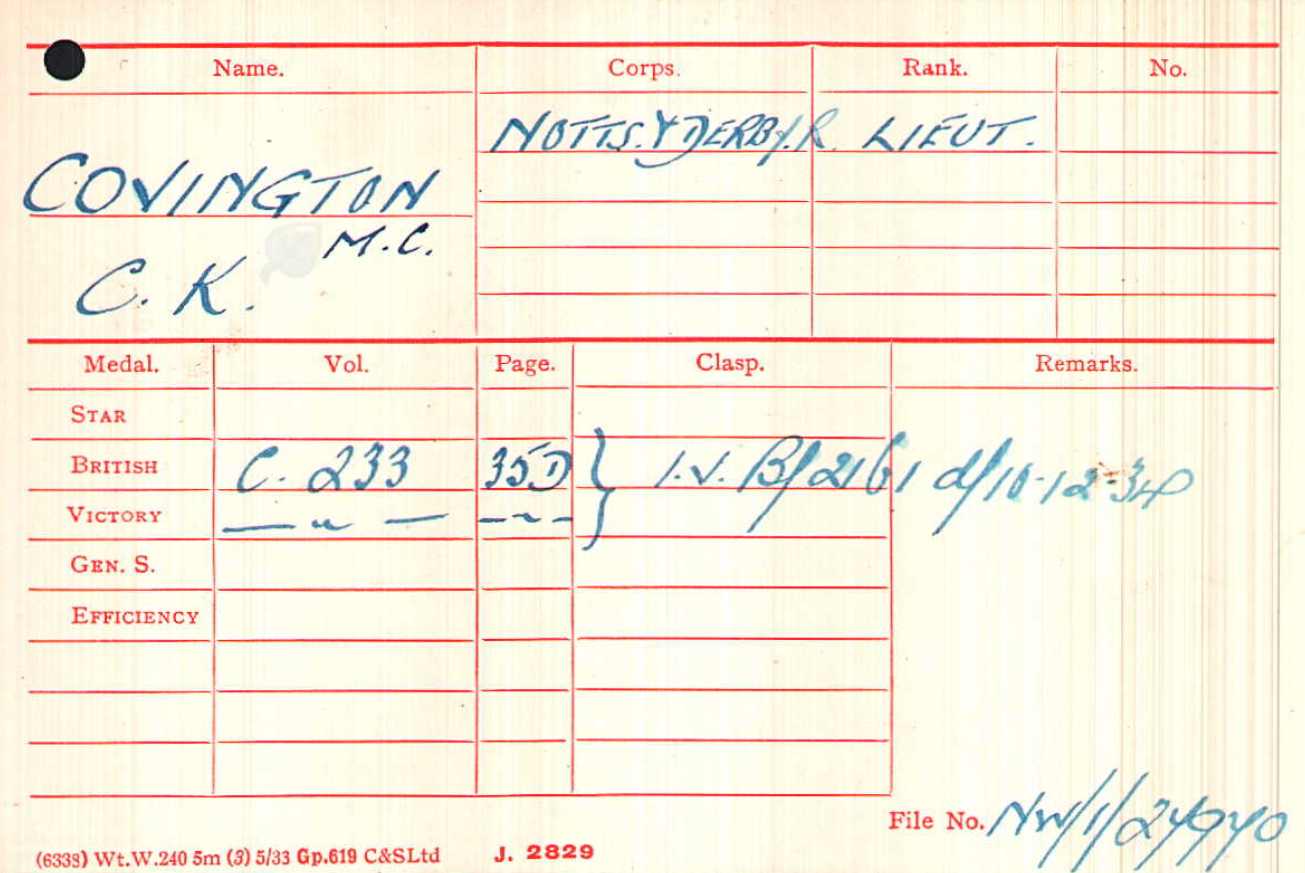 Name. Corps. Rank. No.
NOTTS. & DERBY. R. LIEUT.
COVINGTON
M.C.
C. K.
Medal. Vol. Page. Clasp. Remarks.
STAR
BRITISH C. 233 35D } I.V. B/2161 d/10-12-34
VICTORY — " — — " —
GEN. S.
EFFICIENCY
File No. NW/1/24940
(6338) Wt.W.240 5m (3) 5/33 Gp.619 C&SLtd J. 2829